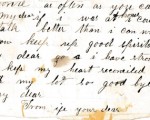 as often as you can
my dear if i was at
talk better than i can
keep up good spirits
dear
keep my heart reconciled
my lot so good by
my dear
From your dear